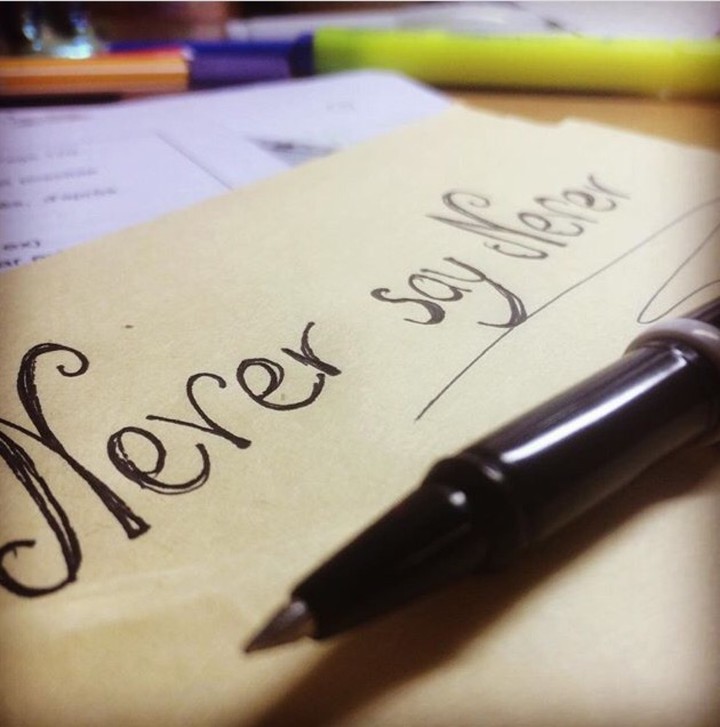 Never say Never